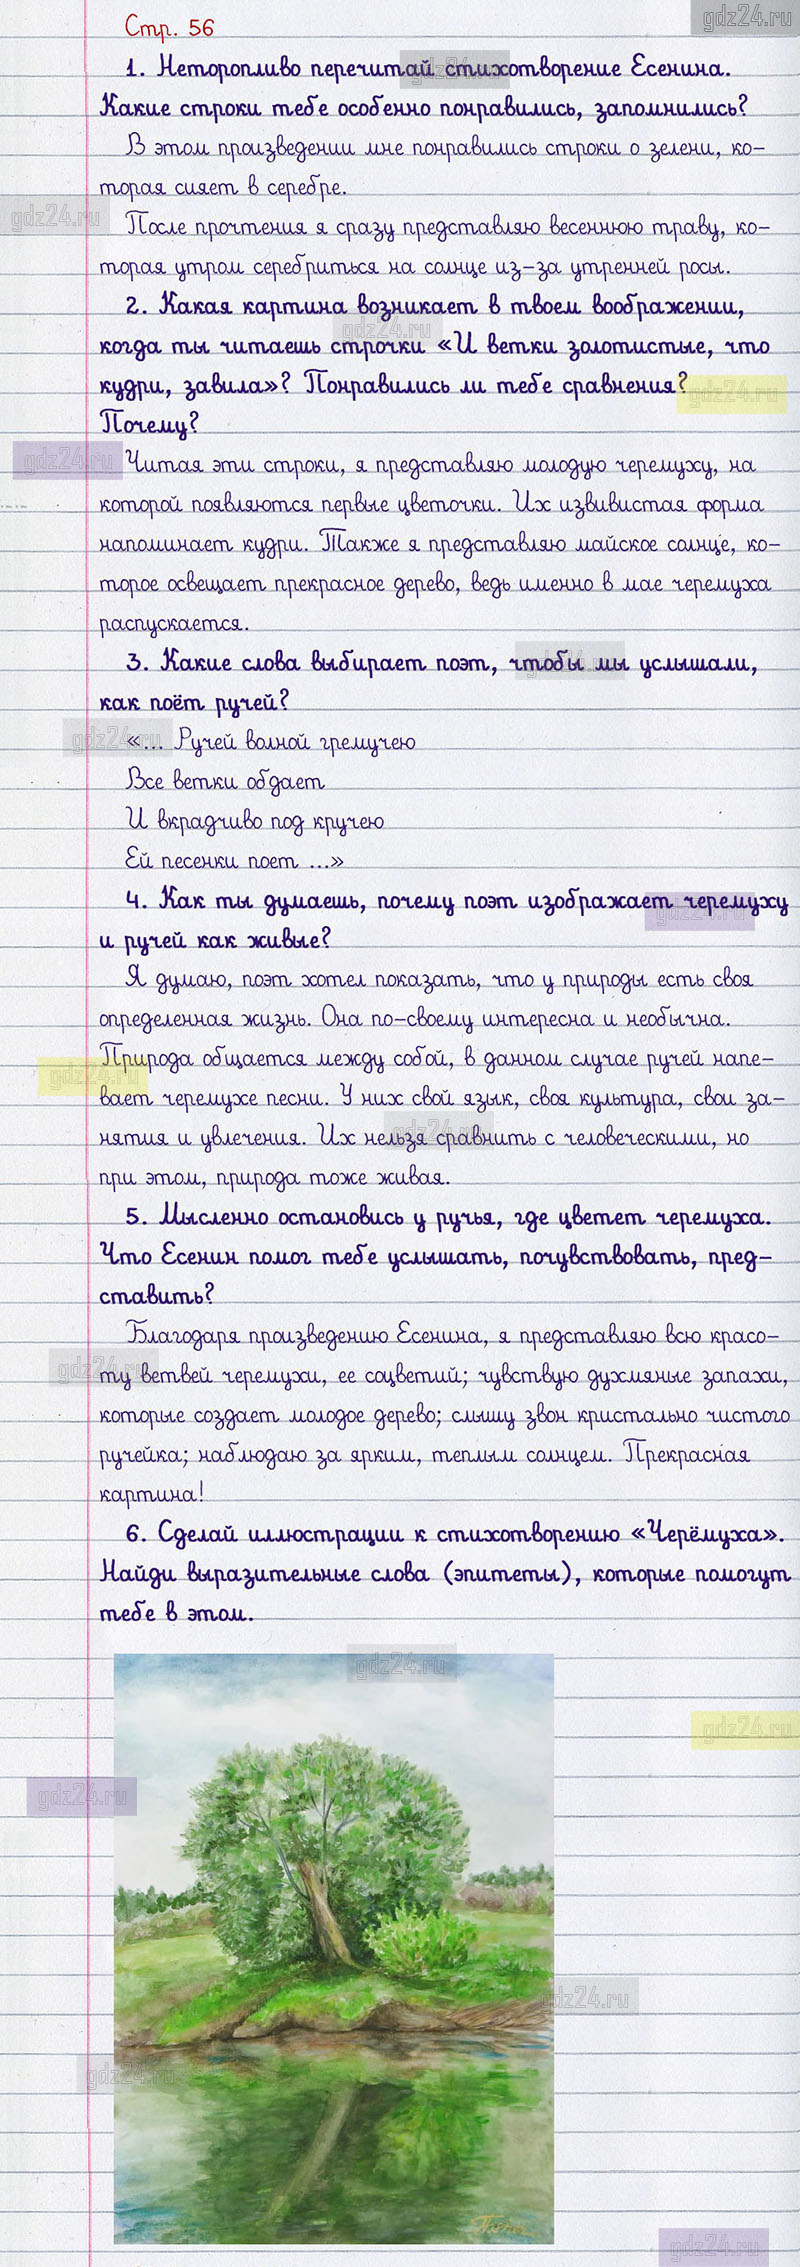 gdz24.ru
Стр. 56
1. Неторопливо перечитай стихотворение Есенина.
gdz24.ru
Какие строки тебе особенно понравились, запомнились?
В этом произведении мне понравились строки о зелени, ко-
торая сияет в серебре.
gdz24.ru
После прочтения я сразу представляю весеннюю траву, ко-
торая утром серебриться на солнце из-за утренней росы.
2. Какая картина возникает в твоем воображении,
gdz24.ru
когда ты читаешь строчки «И ветки золотистые, что
кудри, завила»? Понравились ли тебе сравнения?
gdz24.ru
Почему?
gdz24.ru
Читая эти строки, я представляю молодую черемуху, на
которой появляются первые цветочки. Их извивистая форма
напоминает кудри. Также я представляю майское солнце, ко-
торое освещает прекрасное дерево, ведь именно в мае черемуха
распускается.
3. Какие слова выбирает поэт, чтобы мы услышали,
gdz24.ru
как поёт ручей?
gdz24.ru
«... Ручей волной гремучею
Все ветки обдает
И вкрадчиво под кручею
Ей песенки поет ...»
4. Как ты думаешь, почему поэт изображает черемуху
gdz24.ru
и ручей как живые?
Я думаю, поэт хотел показать, что у природы есть своя
определенная жизнь. Она по-своему интересна и необычна.
Природа общается между собой, в данном случае ручей напе-
gdz24.ru
вает черемухе песни. У них свой язык, своя культура, свои за-
нятия и увлечения. Их нельзя сравнить с человеческими, но
gdz24.ru
при этом, природа тоже живая.
5. Мысленно остановись у ручья, где цветет черемуха.
Что Есенин помог тебе услышать, почувствовать, пред-
ставить?
Благодаря произведению Есенина, я представляю всю красо-
gdz24.ru
ту ветвей черемухи, ее соцветий; чувствую духмяные запахи,
которые создает молодое дерево; слышу звон кристально чистого
ручейка; наблюдаю за ярким, теплым солнцем. Прекрасная
картина!
6. Сделай иллюстрации к стихотворению «Черёмуха».
Найди выразительные слова (эпитеты), которые помогут
тебе в этом.
gdz24.ru
gdz24.ru
gdz24.ru
gdz24.ru
gdz24.ru
gdz24.ru